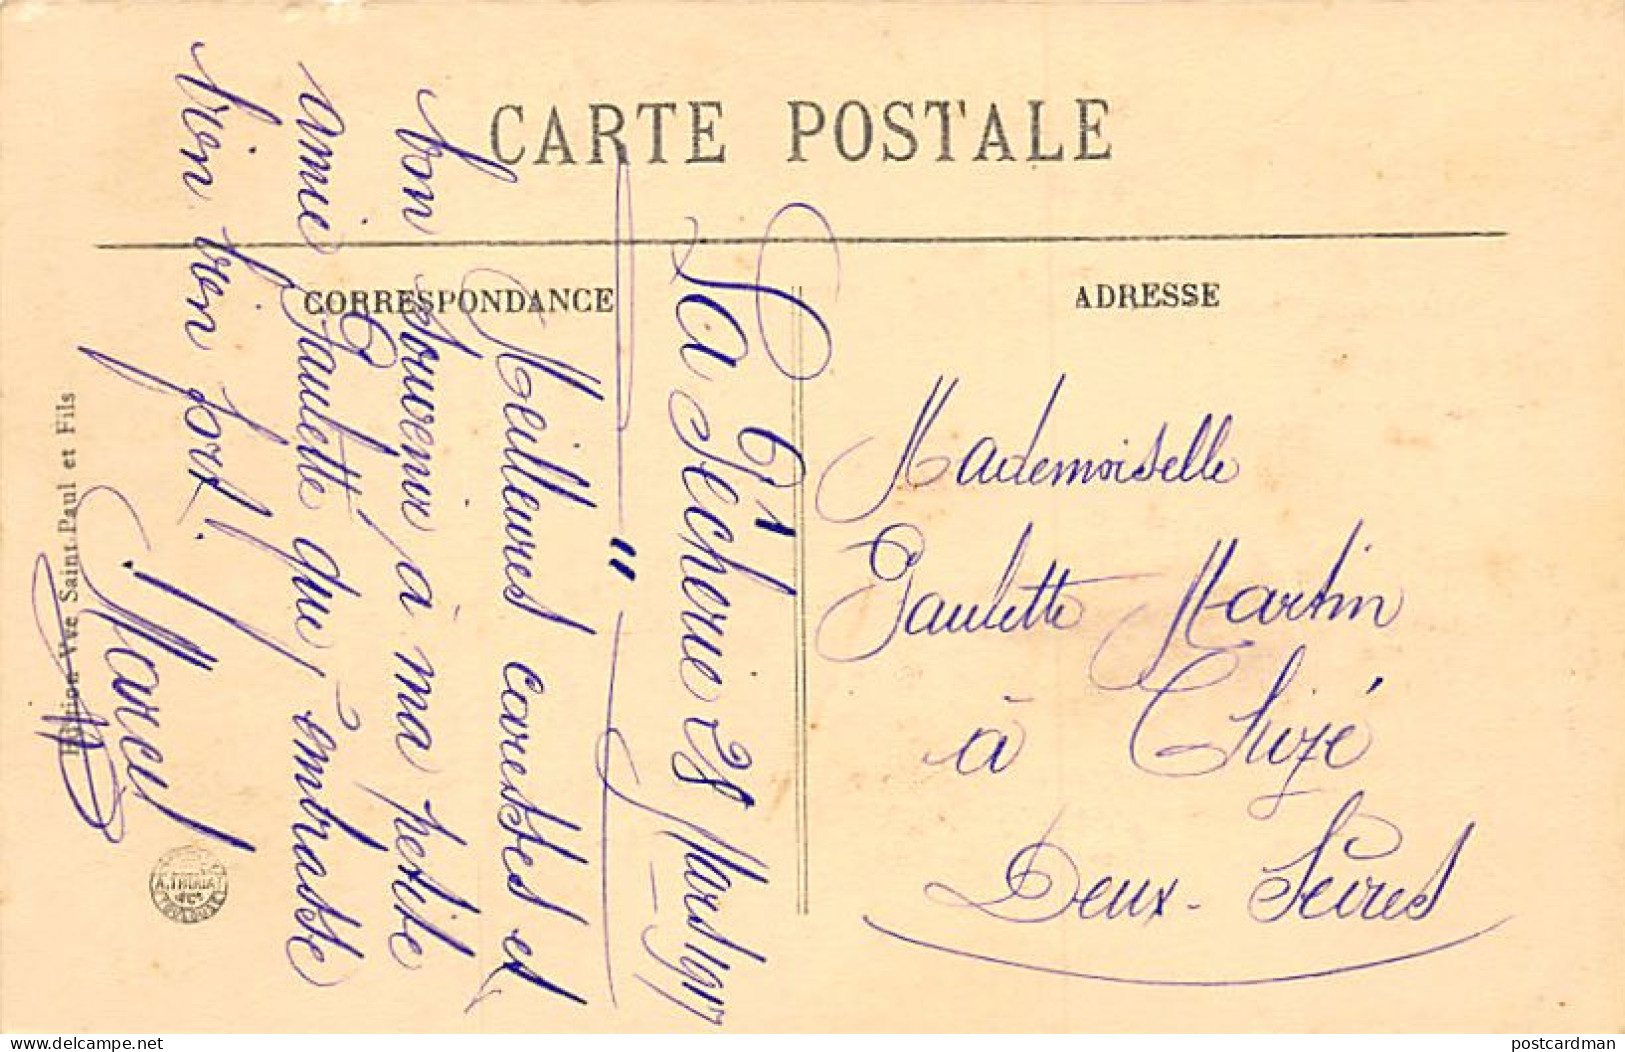 CARTE POSTALE
CORRESPONDANCE
ADRESSE
La Pécherie 28 Mars 1917
"
Meilleures caresses et
bon souvenir à ma petite
amie Paulette qui, embrasse
bien bien fort.
Marcel
Mademoiselle
Paulette Martin
à Chizé
Deux-Sèvres
Edition Vve Saint-Paul et Fils
A. THOUAT
TOULOUSE
delcampe.net
postcardman